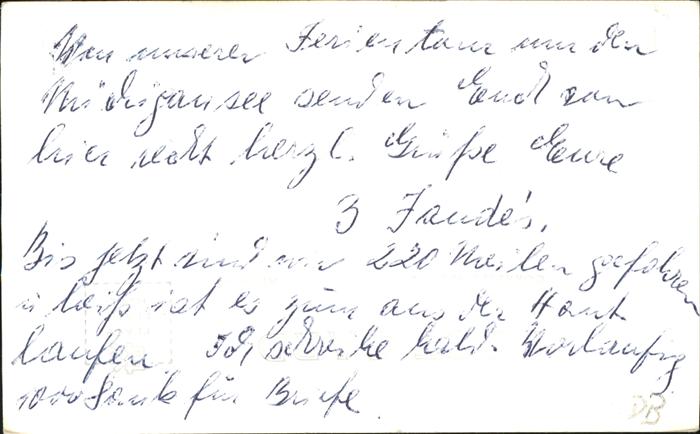 Von unserer Ferientour um den
Michigansee senden Euch von
hier recht herzl. Grüße Eure
3 Jande's.
Bis jetzt sind wir 220 Meilen gefahren
u heiß ist es zum aus der Haut
laufen. Ich schreibe bald. Vorläufig
1000 Dank für Briefe.
DB